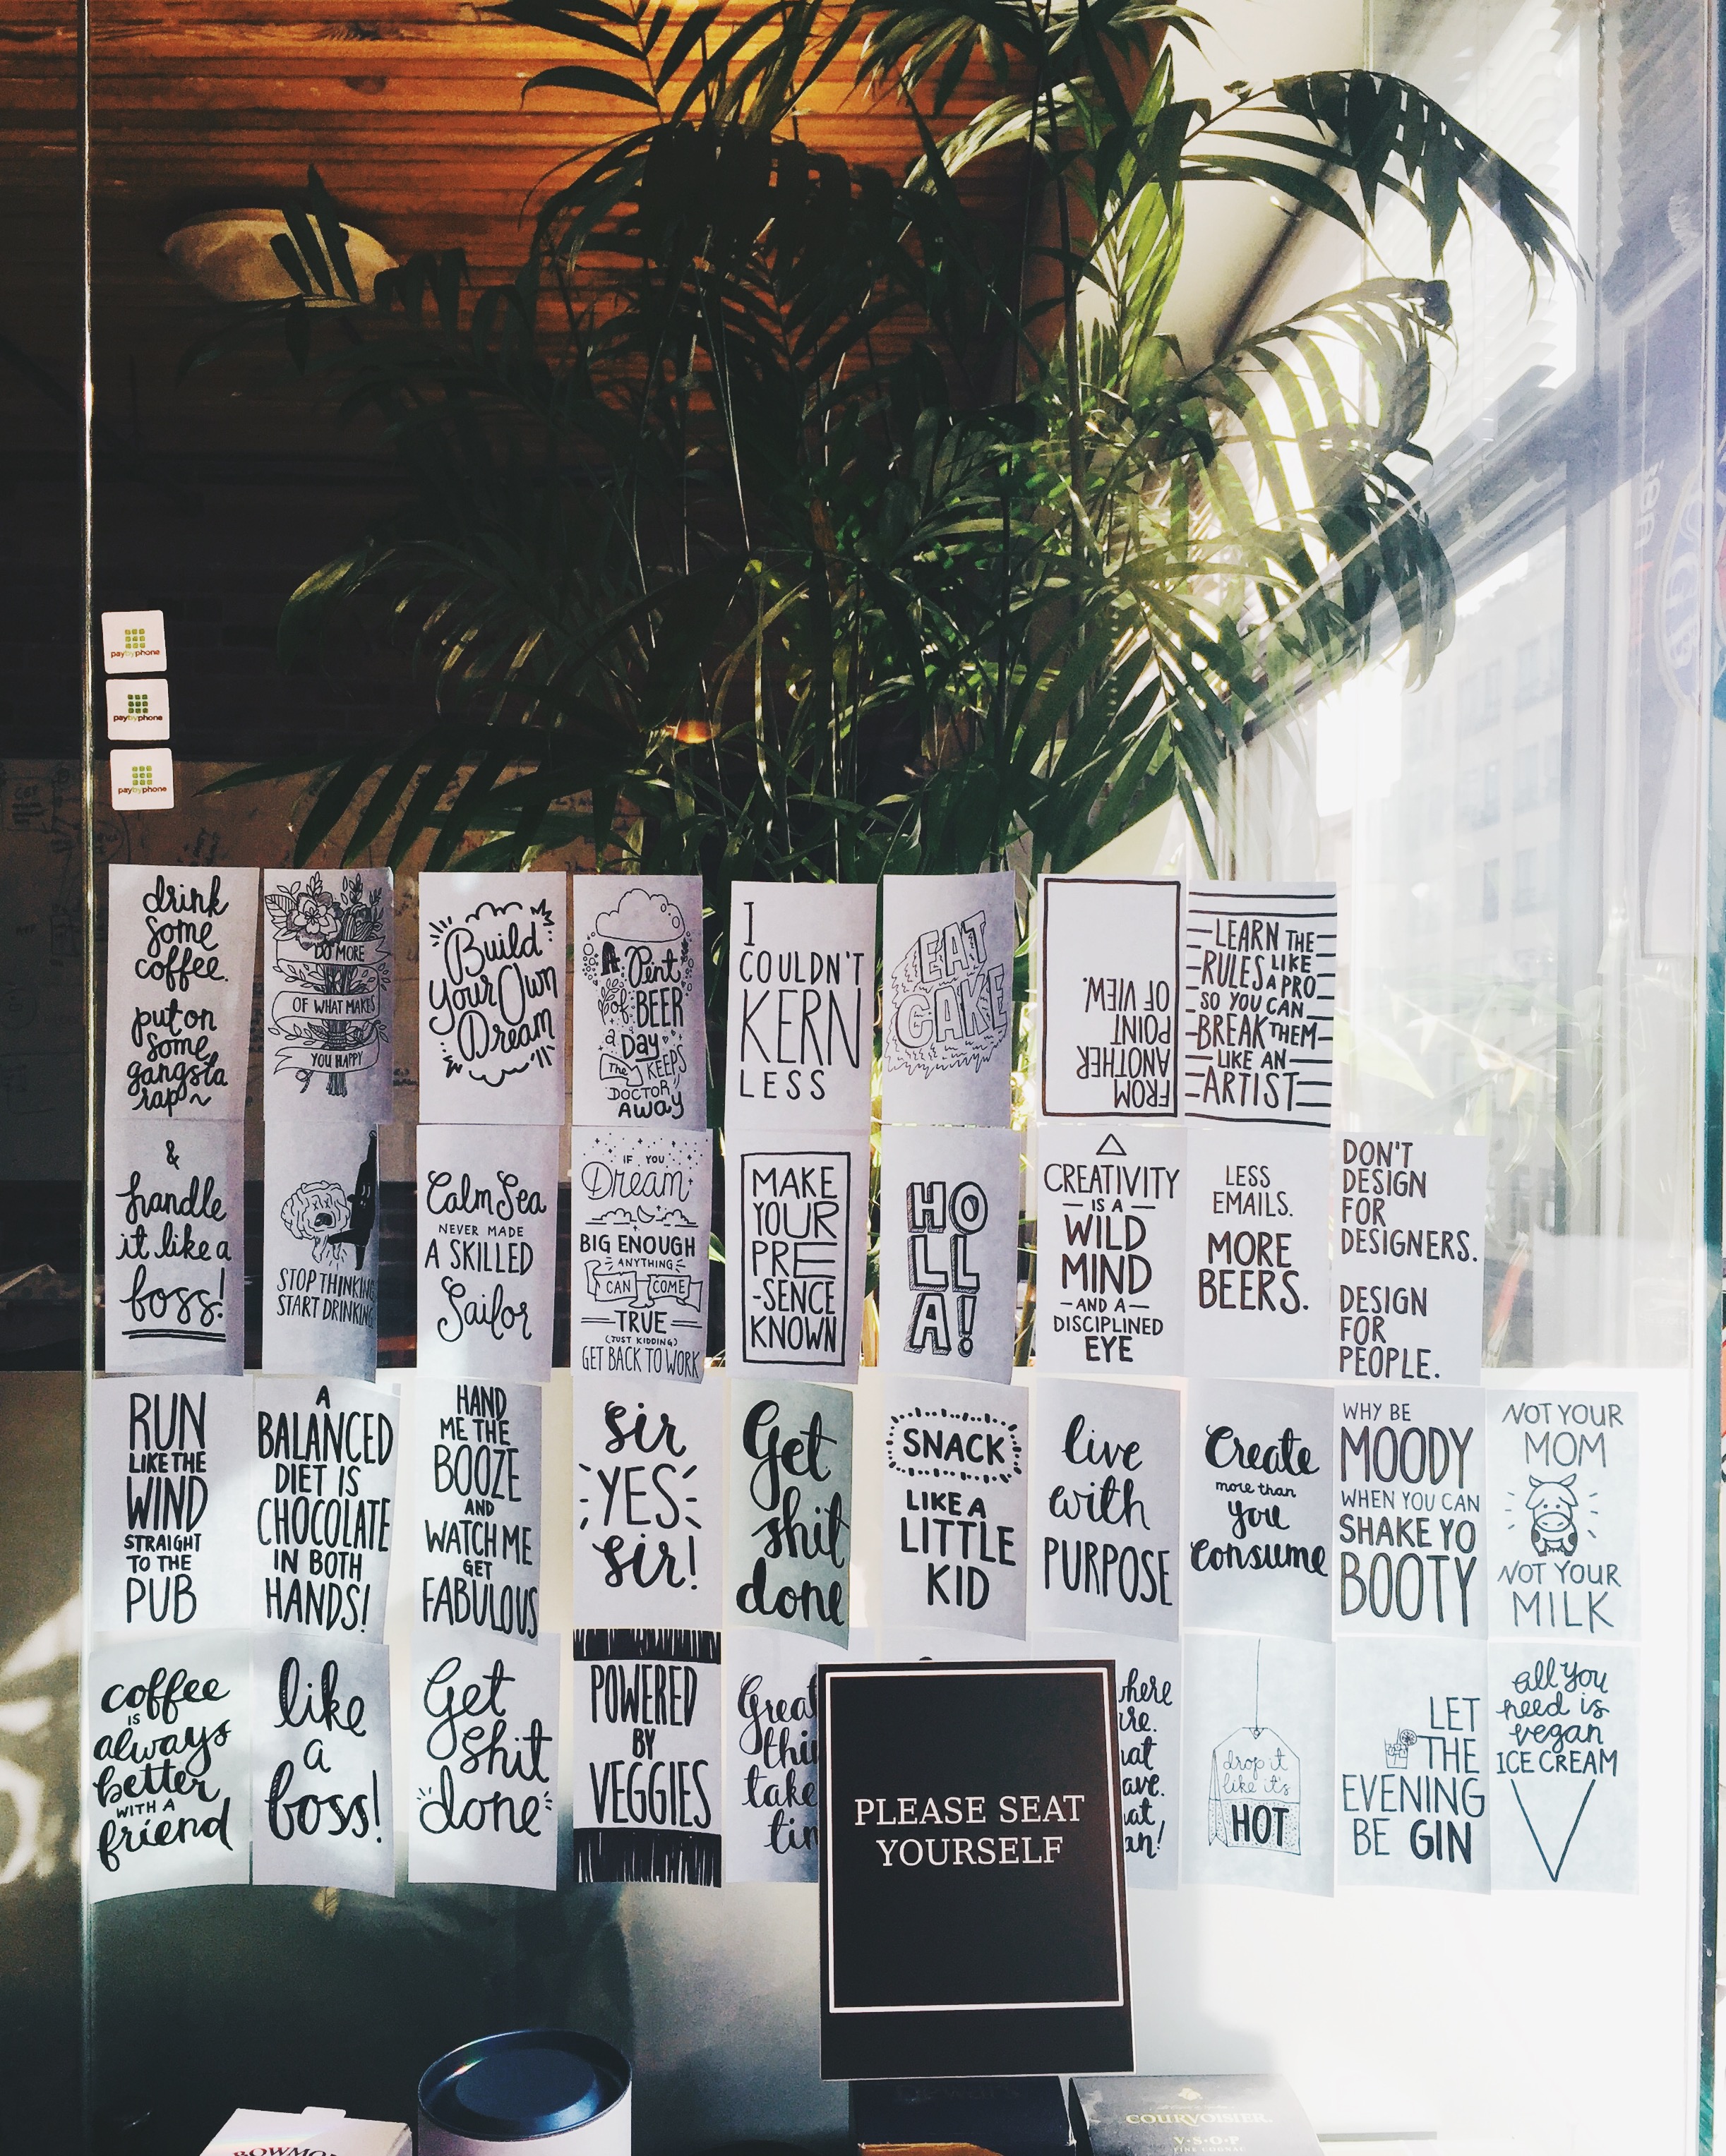 paybyphone
paybyphone
paybyphone
drink
some
coffee.
put on
some
gangsta
rap~
DO MORE
OF WHAT MAKES
YOU HAPPY
Build
your Own
Dream
A Pint
of BEER
a Day
The KEEPS
DOCTOR
AWAY
I
COULDN'T
KERN
LESS
EAT
CAKE
FROM
ANOTHER
POINT
OF VIEW.
LEARN THE
RULES LIKE
A PRO
SO YOU CAN
BREAK THEM
LIKE AN
ARTIST
&
handle
it like a
boss!
STOP THINKING
START DRINKING
Calm Sea
NEVER MADE
A SKILLED
Sailor
IF YOU
Dream
BIG ENOUGH
ANYTHING
CAN COME
TRUE
(JUST KIDDING)
GET BACK TO WORK
MAKE
YOUR
PRE
-SENCE
KNOWN
HO
LL
A!
CREATIVITY
IS A
WILD
MIND
AND A
DISCIPLINED
EYE
LESS
EMAILS.
MORE
BEERS.
DON'T
DESIGN
FOR
DESIGNERS.
DESIGN
FOR
PEOPLE.
RUN
LIKE THE
WIND
STRAIGHT
TO THE
PUB
A
BALANCED
DIET IS
CHOCOLATE
IN BOTH
HANDS!
HAND
ME THE
BOOZE
AND
WATCH ME
GET
FABULOUS
Sir
YES
Sir!
Get
shit
done
SNACK
LIKE A
LITTLE
KID
live
with
PURPOSE
Create
more than
you
Consume
WHY BE
MOODY
WHEN YOU CAN
SHAKE YO
BOOTY
NOT YOUR
MOM
NOT YOUR
MILK
coffee
IS
always
better
WITH A
friend
like
a
boss!
Get
shit
done
POWERED
BY
VEGGIES
Great
take
PLEASE SEAT
YOURSELF
drop it
like it's
HOT
LET
THE
EVENING
BE GIN
All you
need is
vegan
ICE CREAM
COURVOISIER
V·S·O·P
FINE COGNAC